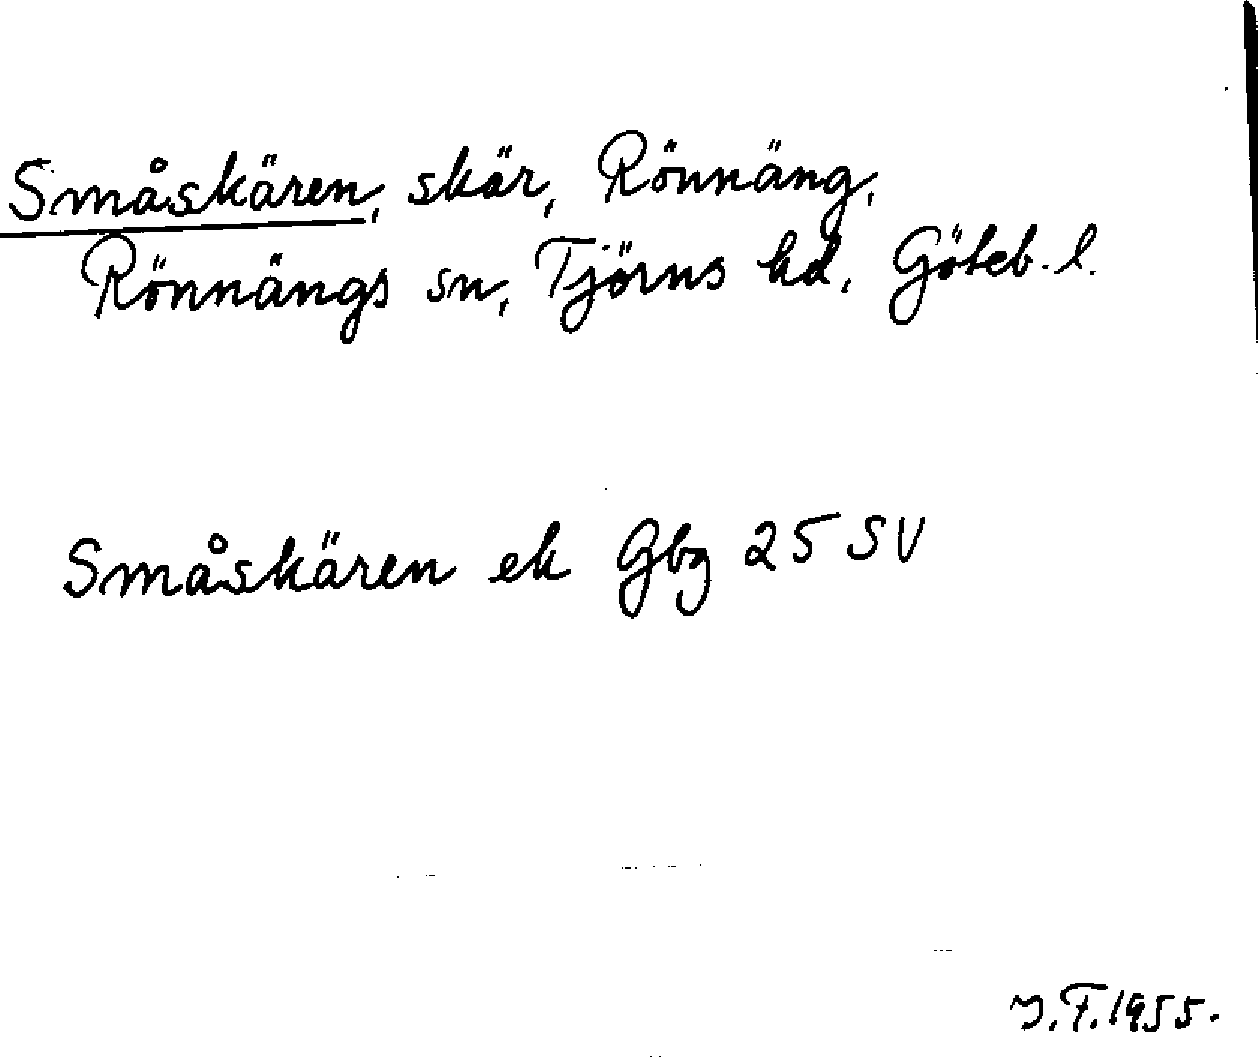 Småskären, skär, Rönnäng,
Rönnängs sn, Tjörns hd, Göteb. l.
Småskären ek Gbg 25 SV
J.F. 1955.